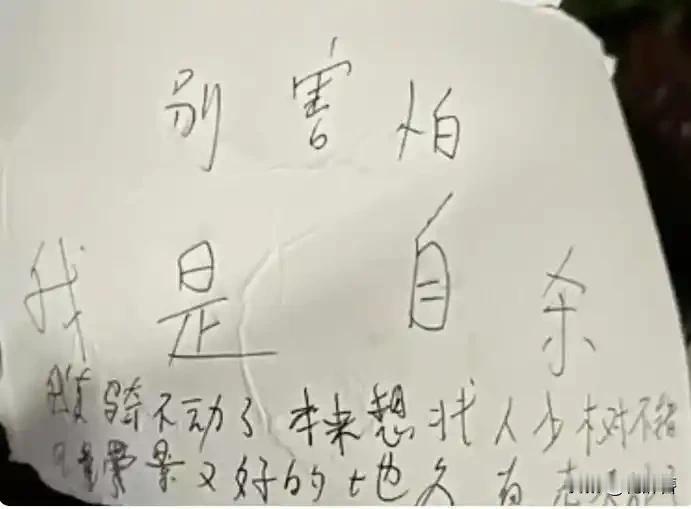 别害怕
我是自杀
骑不动了 本来想找人少树不错
景又好的地 有